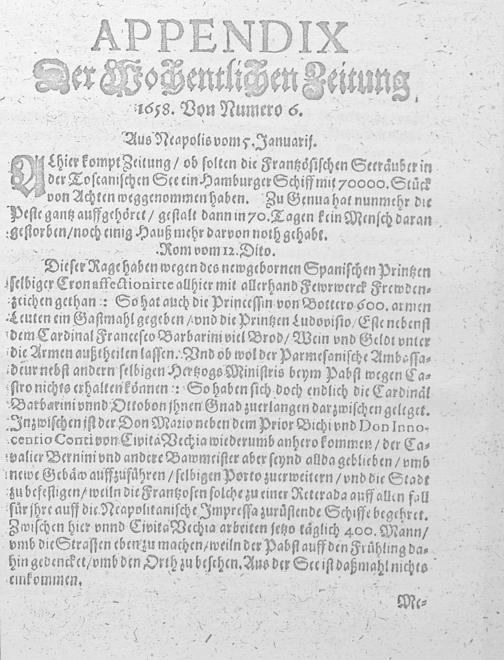 APPENDIX
Der Wochentlichen Zeitung,
1658. Von Numero 6.
Aus Neapolis vom 5. Januarij.
Alhier kompt Zeitung / ob solten die Frantzösischen Seeräuber in
der Toscanischen See ein Hamburger Schiff mit 70000. Stück
von Achten weggenommen haben. Zu Genua hat nunmehr die
Peste gantz auffgehöret / gestalt dann in 70. Tagen kein Mensch daran
gestorben / noch einig Hauß mehr darvon noth gehabt.
Rom vom 12. Dito.
Dieser Tage haben wegen des newgebornen Spanischen Printzen
selbiger Cron affectionirte allhier mit allerhand Fewrwerck Frewden-
zeichen gethan : So hat auch die Princessin von Bottero 600. armen
Leuten ein Gastmahl gegeben / vnd die Printzen Ludovisio / Este nebenst
dem Cardinal Francesco Barbarini viel Brod / Wein vnd Geldt vnter
die Armen außtheilen lassen. Vnd ob wol der Parmesanische Ambassa-
deur nebst andern selbigen Hertzogs Ministris beym Pabst wegen Ca-
stro nichts erhalten können : So haben sich doch endlich die Cardinäl
Barbarini vnnd Ottobon jhnen Gnad zuerlangen darzwischen geleget.
Inzwischen ist der Don Mario neben dem Prior Bichi vnd Don Inno-
centio Conti von Civita Vechia wiederumb anhero kommen / der Ca-
valier Bernini vnd andere Bawmeister aber seynd allda geblieben / vmb
newe Gebäw auffzuführen / selbigen Porto zuerweitern / vnd die Stadt
zu befestigen / weiln die Frantzosen solche zu einer Reterada auff allen fall
für jhre auff die Neapolitanische Impressa zurüstende Schiffe begehret.
Zwischen hier vnnd Civita Vechia arbeiten jetzo täglich 400. Mann /
vmb die Strassen eben zu machen / weiln der Pabst auff den Frühling da-
hin gedencket / vmb den Orth zu besehen. Aus der See ist daßmahl nichts
einkommen.
Me-